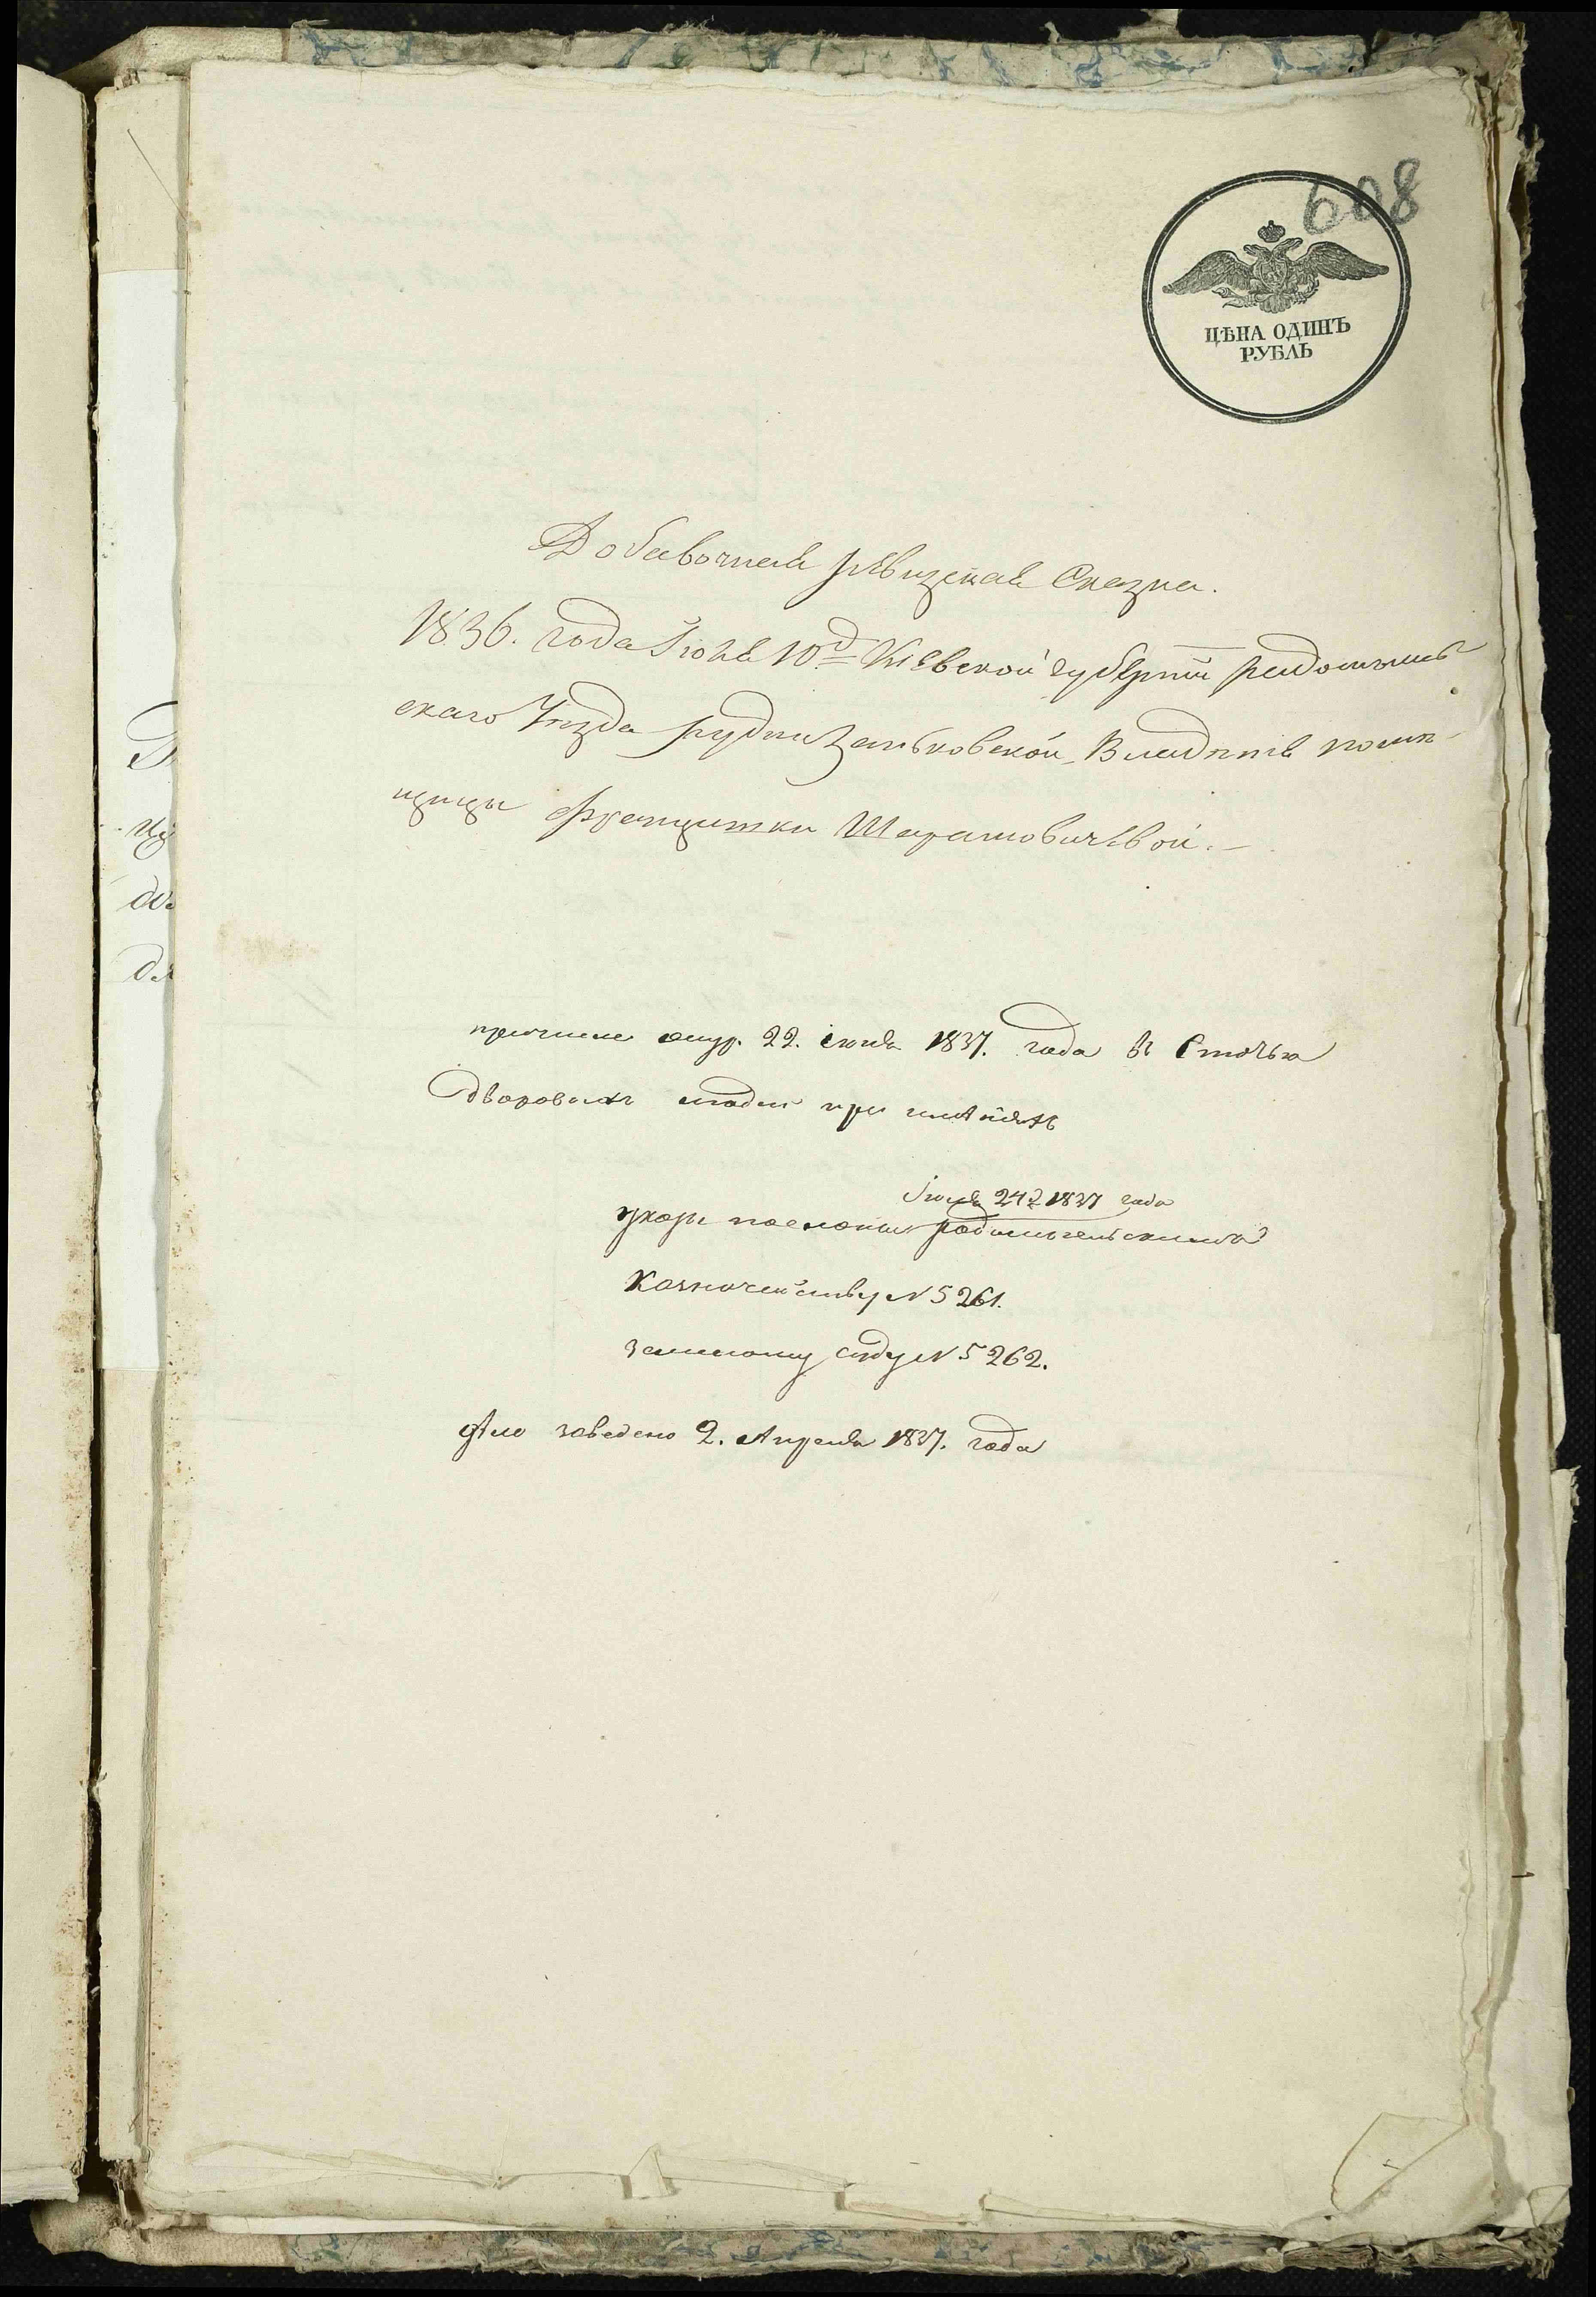 608
ЦѢНА ОДИНЪ
РУБЛЬ
Добавочная ревизская Сказка.
1836. года Іюня 10д Кіевской губерніи радомысль
скаго Уѣзда рудни Заньковской, Владѣнія помѣ-
щицы Францишки Шарамовичевой.
22. іюня 1837. года въ
дворовыхъ людей при имѣніяхъ
Іюня 24д 1837 года
указы посланы радомысльскимъ
Казначейству N 5261.
земскому суду N 5262.
дѣло заведено 2. Апреля 1837. года